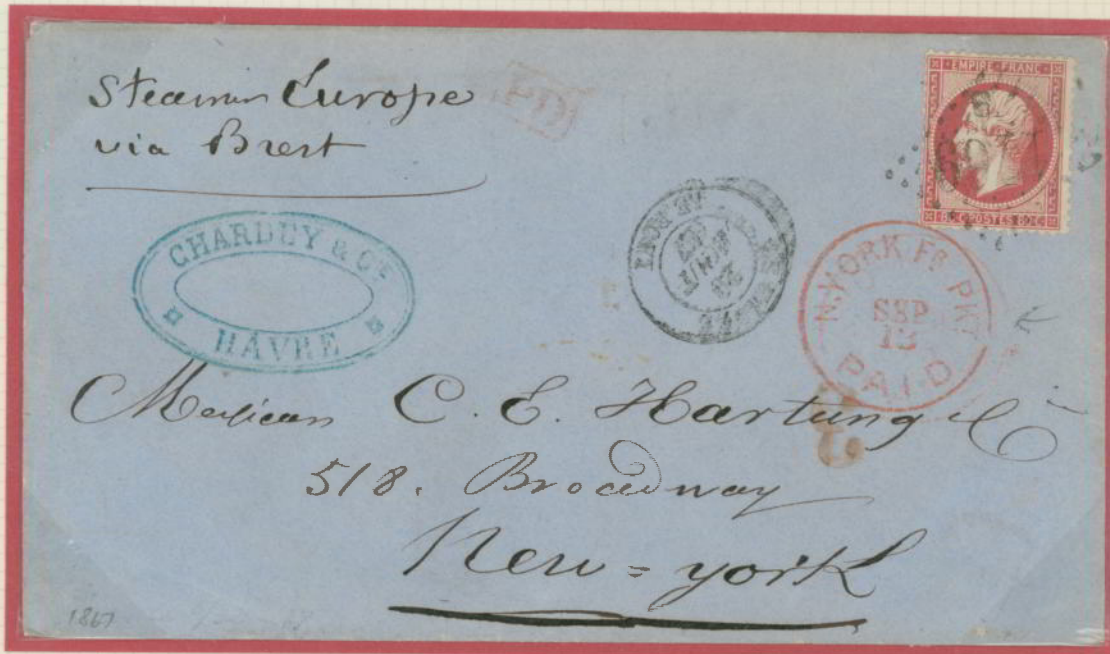 Steamer Europe
via Brest
PD
EMPIRE FRANC
80 C POSTES 80 C
CHARDEY & Cie
HAVRE
N. YORK Fr PKT
SEP
13
PAID
C. E. Hartung & Co
518. Broadway
New=york
1867